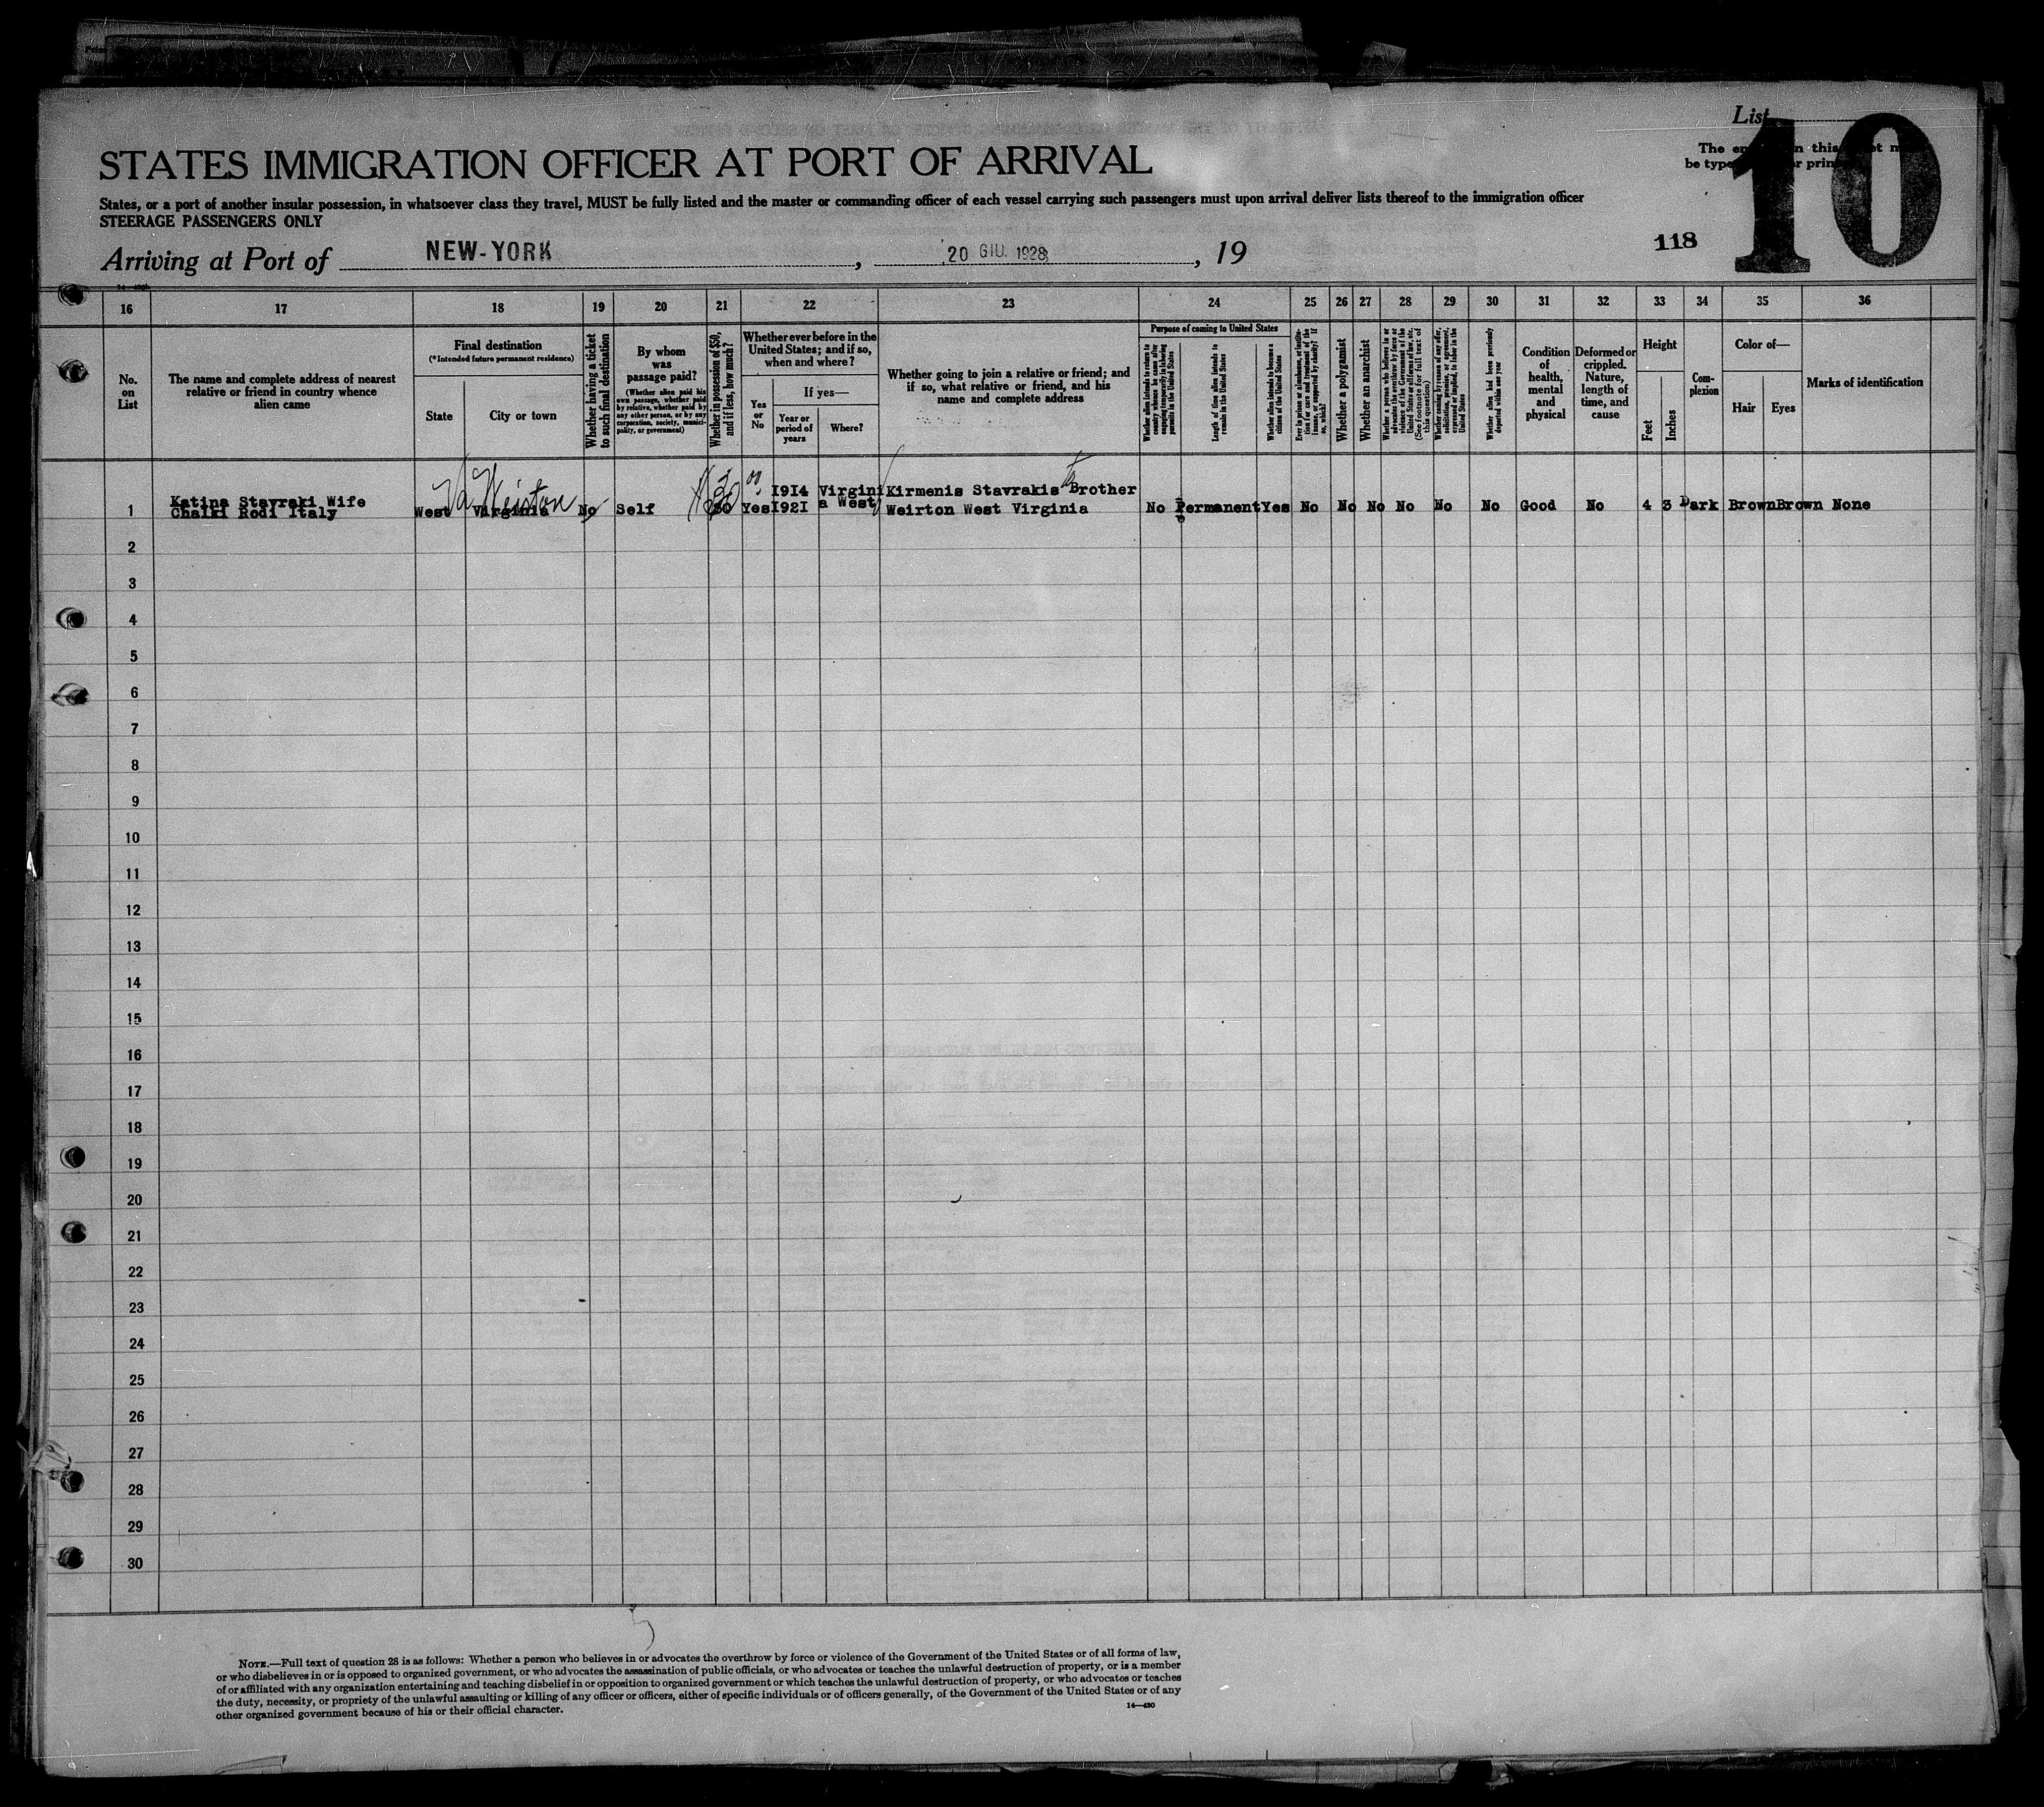 List
10
The en n this et m
be type r prin
STATES IMMIGRATION OFFICER AT PORT OF ARRIVAL
States, or a port of another insular possession, in whatsoever class they travel, MUST be fully listed and the master or commanding officer of each vessel carrying such passengers must upon arrival deliver lists thereof to the immigration officer
STEERAGE PASSENGERS ONLY
Arriving at Port of NEW-YORK , 20 GIU. 1928 , 19
118
16 17 18 19 20 21 22 23 24 25 26 27 28 29 30 31 32 33 34 35 36
No. on List
The name and complete address of nearest relative or friend in country whence alien came
Final destination
(*Intended future permanent residence)
State
City or town
Whether having a ticket to such final destination
By whom was passage paid?
(Whether alien paid his own passage, whether paid by relative, whether paid by any other person, or by any corporation, society, municipality, or government)
Whether in possession of $50, and if less, how much?
Whether ever before in the United States; and if so, when and where?
Yes or No
If yes—
Year or period of years
Where?
Whether going to join a relative or friend; and if so, what relative or friend, and his name and complete address
Purpose of coming to United States
Whether alien intends to return to country whence he came after engaging temporarily in laboring pursuits in the United States
Length of time alien intends to remain in the United States
Whether alien intends to become a citizen of the United States
Ever in prison or almshouse, or institution for care and treatment of the insane, or supported by charity? If so, which?
Whether a polygamist
Whether an anarchist
Whether a person who believes in or advocates the overthrow by force or violence of the Government of the United States or all forms of law, etc. (See footnote for full text of this question)
Whether coming by reason of any offer, solicitation, promise, or agreement, expressed or implied, to labor in the United States
Whether alien had been previously deported within one year
Condition of health, mental and physical
Deformed or crippled. Nature, length of time, and cause
Height
Feet
Inches
Complexion
Color of—
Hair
Eyes
Marks of identification
Va Weirton 00
Katina Stavraki Wife 1914 Virgini Kirmenis Stavrakis Brother
1 Chalki Rodi Italy West Virginia No Self 50 Yes 1921 a West Weirton West Virginia No Permanent Yes No No No No No No Good No 4 3 Dark Brown Brown None
2
3
4
5
6
7
8
9
10
11
12
13
14
15
16
17
18
19
20
21
22
23
24
25
26
27
28
29
30
NOTE.—Full text of question 28 is as follows: Whether a person who believes in or advocates the overthrow by force or violence of the Government of the United States or of all forms of law,
or who disbelieves in or is opposed to organized government, or who advocates the assassination of public officials, or who advocates or teaches the unlawful destruction of property, or is a member
of or affiliated with any organization entertaining and teaching disbelief in or opposition to organized government or which teaches the unlawful destruction of property, or who advocates or teaches
the duty, necessity, or propriety of the unlawful assaulting or killing of any officer or officers, either of specific individuals or of officers generally, of the Government of the United States or of any
other organized government because of his or their official character.
14—430